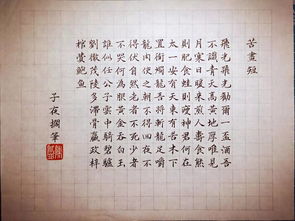 苦晝短
飛光飛光勸爾一盃酒吾
不識青天高黃地厚唯見
月寒日暖來煎人壽食熊
則肥食蛙則瘦神君何在
太一安有天東有若木下
置銜燭龍吾將斬龍足嚼
龍肉使之朝不得迴夜不
得伏自然老者不死少者
不哭何為服黃金吞白玉
誰似任公子雲中騎碧驢
劉徹茂陵多滯骨嬴政梓
棺費鮑魚
子夜擱筆